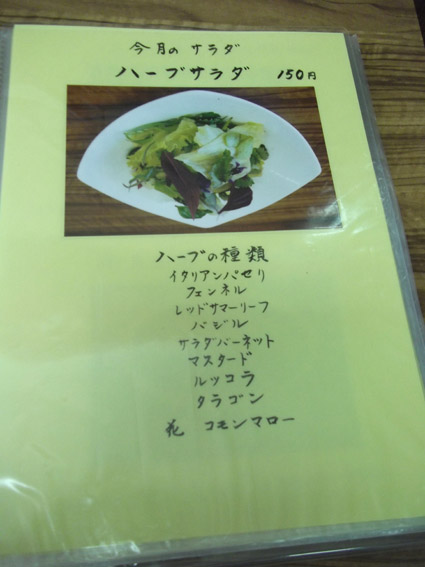 今月の サラダ
ハーブサラダ 150円
ハーブの種類
イタリアンパセリ
フェンネル
レッドサマーリーフ
バジル
サラダバーネット
マスタード
ルッコラ
タラゴン
花 コモンマロー